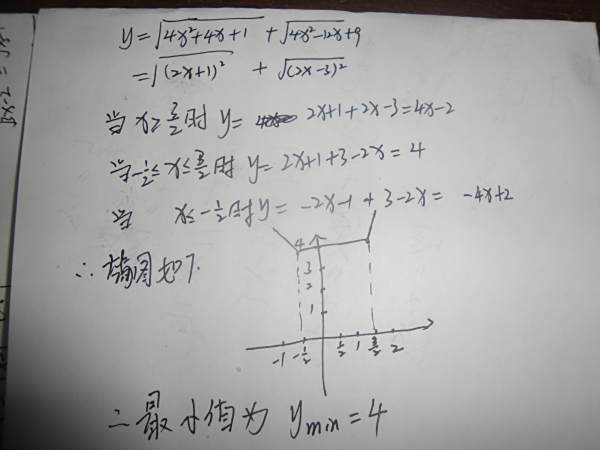 y=√4x²+4x+1 + √4x²-12x+9
=√(2x+1)² + √(2x-3)²
当 x≥3/2时 y= 2x+1+2x-3=4x-2
当-1/2≤x≤3/2时 y=2x+1+3-2x=4
当 x≤-1/2时 y= -2x-1+3-2x= -4x+2
4
∴ 图如下.
3
2
1
-1 -1/2 1/2 1 3/2 2
∴最小值为 y min=4